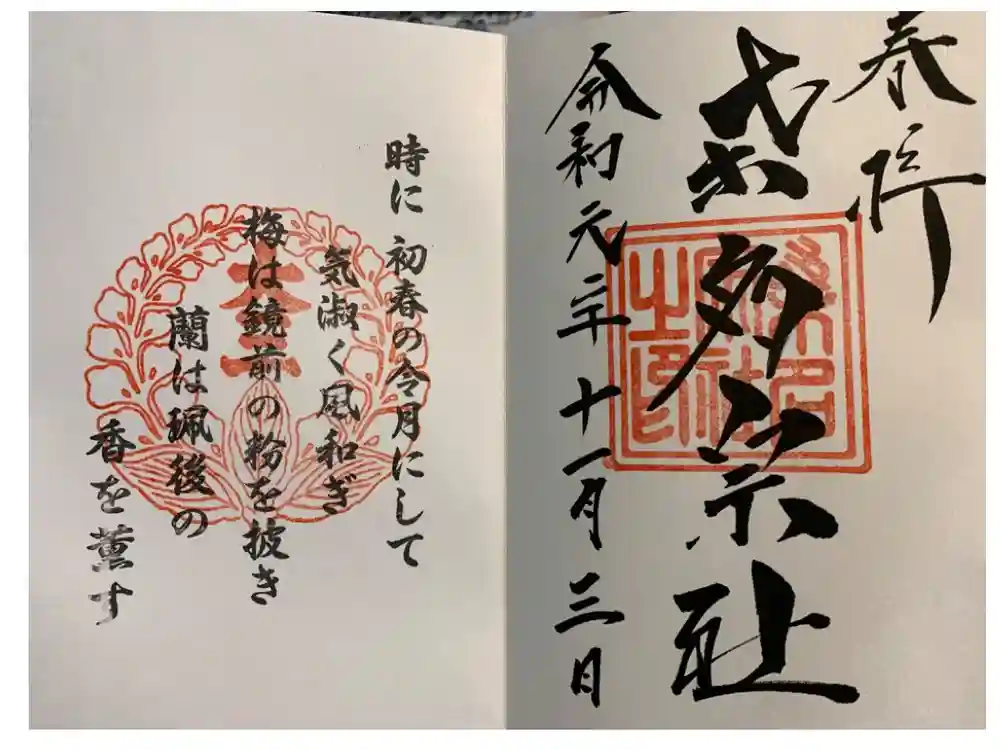 奉拝
宗社
令和元年十一月三日
時に 初春の令月にして
気淑く風和ぎ
梅は鏡前の粉を披き
蘭は珮後の
香を薫す